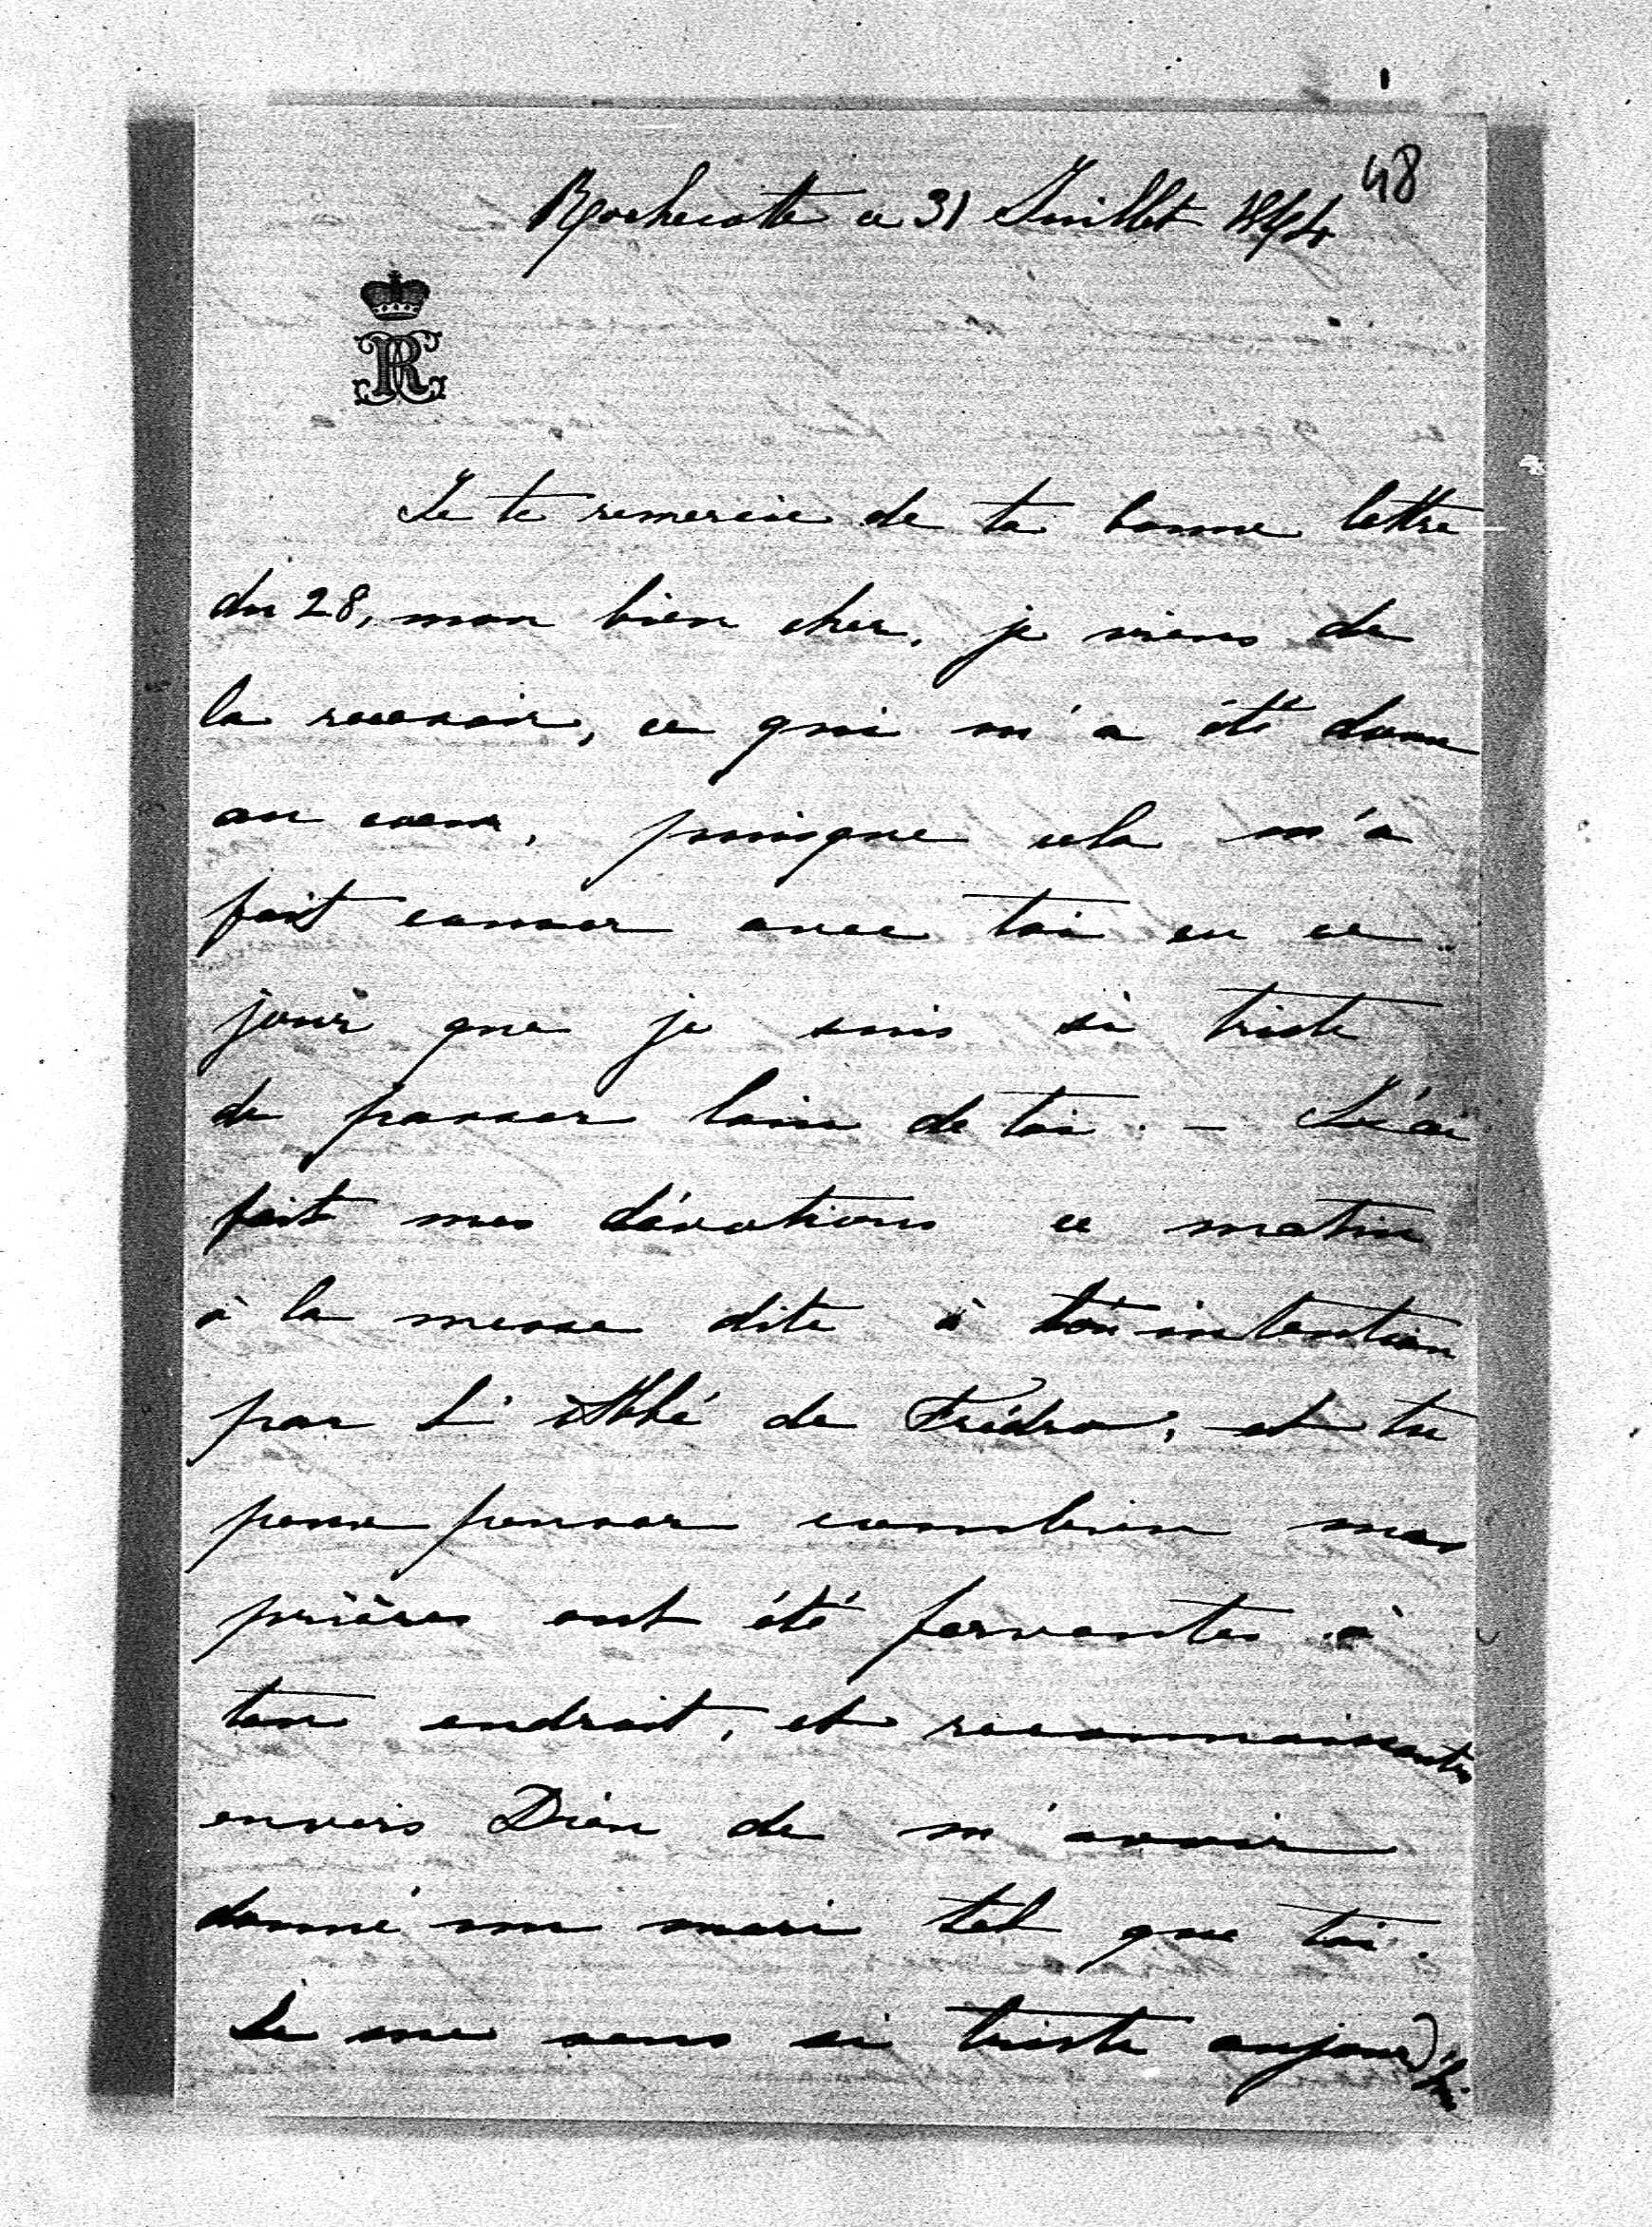 48
Rochecotte ce 31 Juillet 1894
R
Je te remercie de ta bonne lettre
du 28, mon bien cher, je viens de
la recevoir, ce qui m'a été doux
au coeur, puisque cela m'a
fait causer avec toi en ce
jour que je suis si triste
de passer loin de toi. - J'ai
fait mes dévotions ce matin
à la messe dite à ton intention
par L'Abbé de Frédro, et tu
peux penser combien mes
prières ont été ferventes à
ton endroit, et reconnaissantes
envers Dieu de m'avoir
donné un mari tel que toi.
Je me sens si triste aujourd'hui